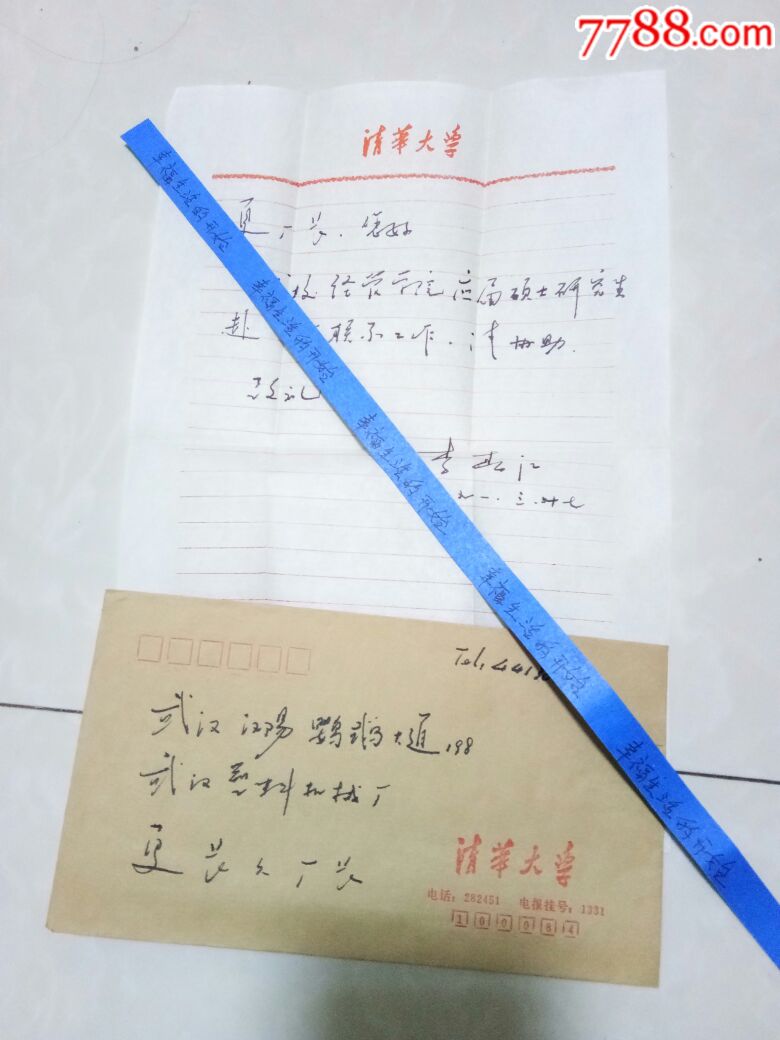 7788.com
清华大学
夏厂长.您好
我校经管学院应届硕士研究生
赴 联系工作.请协助.
敬礼
李
九一.三.廿七
幸福生活的开始
幸福生活的开始
幸福生活的开始
幸福生活的开始
幸福生活的开始
Tel.
武汉汉阳鹦鹉大道198
武汉塑料机械厂
夏长 厂长
清华大学
电话:282451 电报挂号:1331
100084